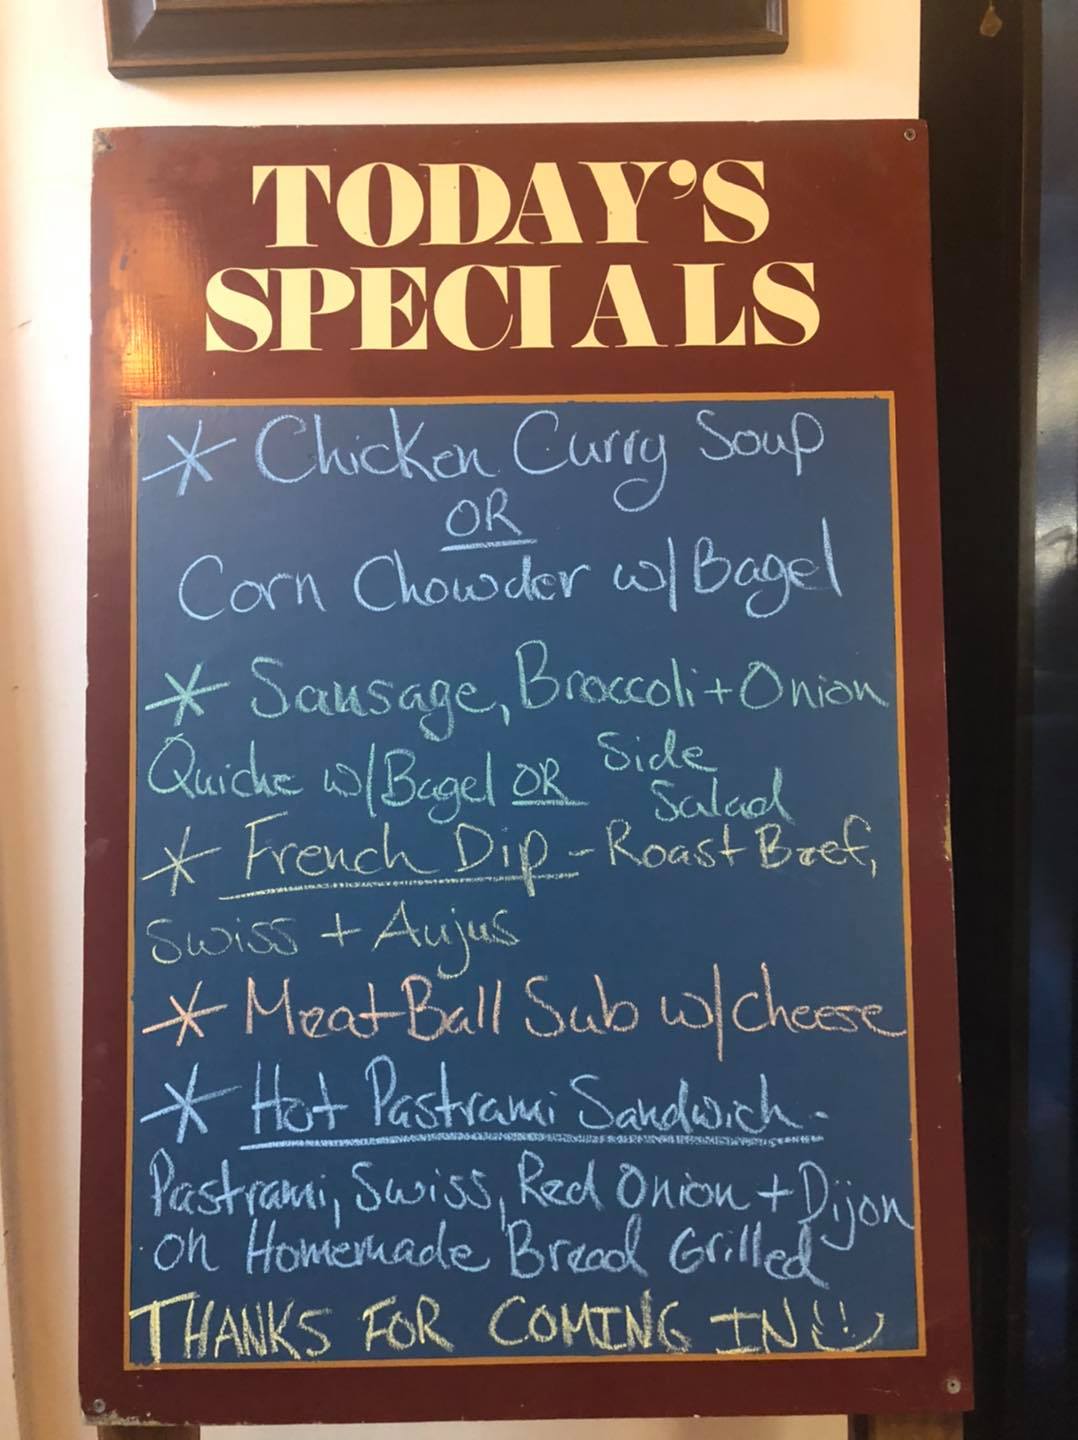 TODAY'S
SPECIALS
* Chicken Curry Soup
OR
Corn Chowder w/Bagel
* Sausage, Broccoli + Onion
Quiche w/Bagel OR Side Salad
* French Dip - Roast Beef,
Swiss + Aujus
* Meat Ball Sub w/cheese
* Hot Pastrami Sandwich -
Pastrami, Swiss, Red Onion + Dijon
on Homemade Bread Grilled
THANKS FOR COMING IN!!